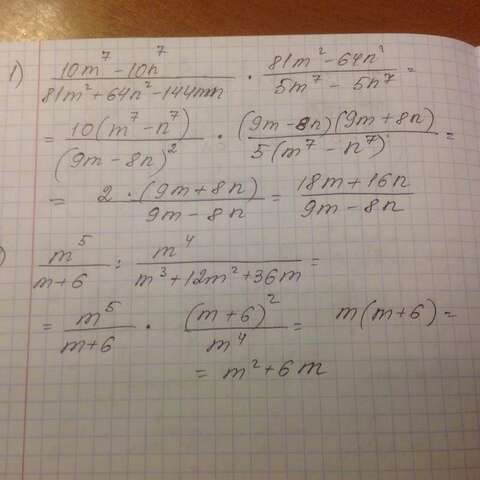 1) (10m⁷ - 10n⁷)/(81m² + 64n² - 144mn) · (81m² - 64n²)/(5m⁷ - 5n⁷) =
= 10(m⁷ - n⁷)/(9m - 8n)² · (9m - 8n)(9m + 8n)/5(m⁷ - n⁷) =
= 2 · (9m + 8n)/(9m - 8n) = (18m + 16n)/(9m - 8n)
) m⁵/(m+6) : m⁴/(m³ + 12m² + 36m) =
= m⁵/(m+6) · (m+6)²/m⁴ = m(m+6) =
= m² + 6m